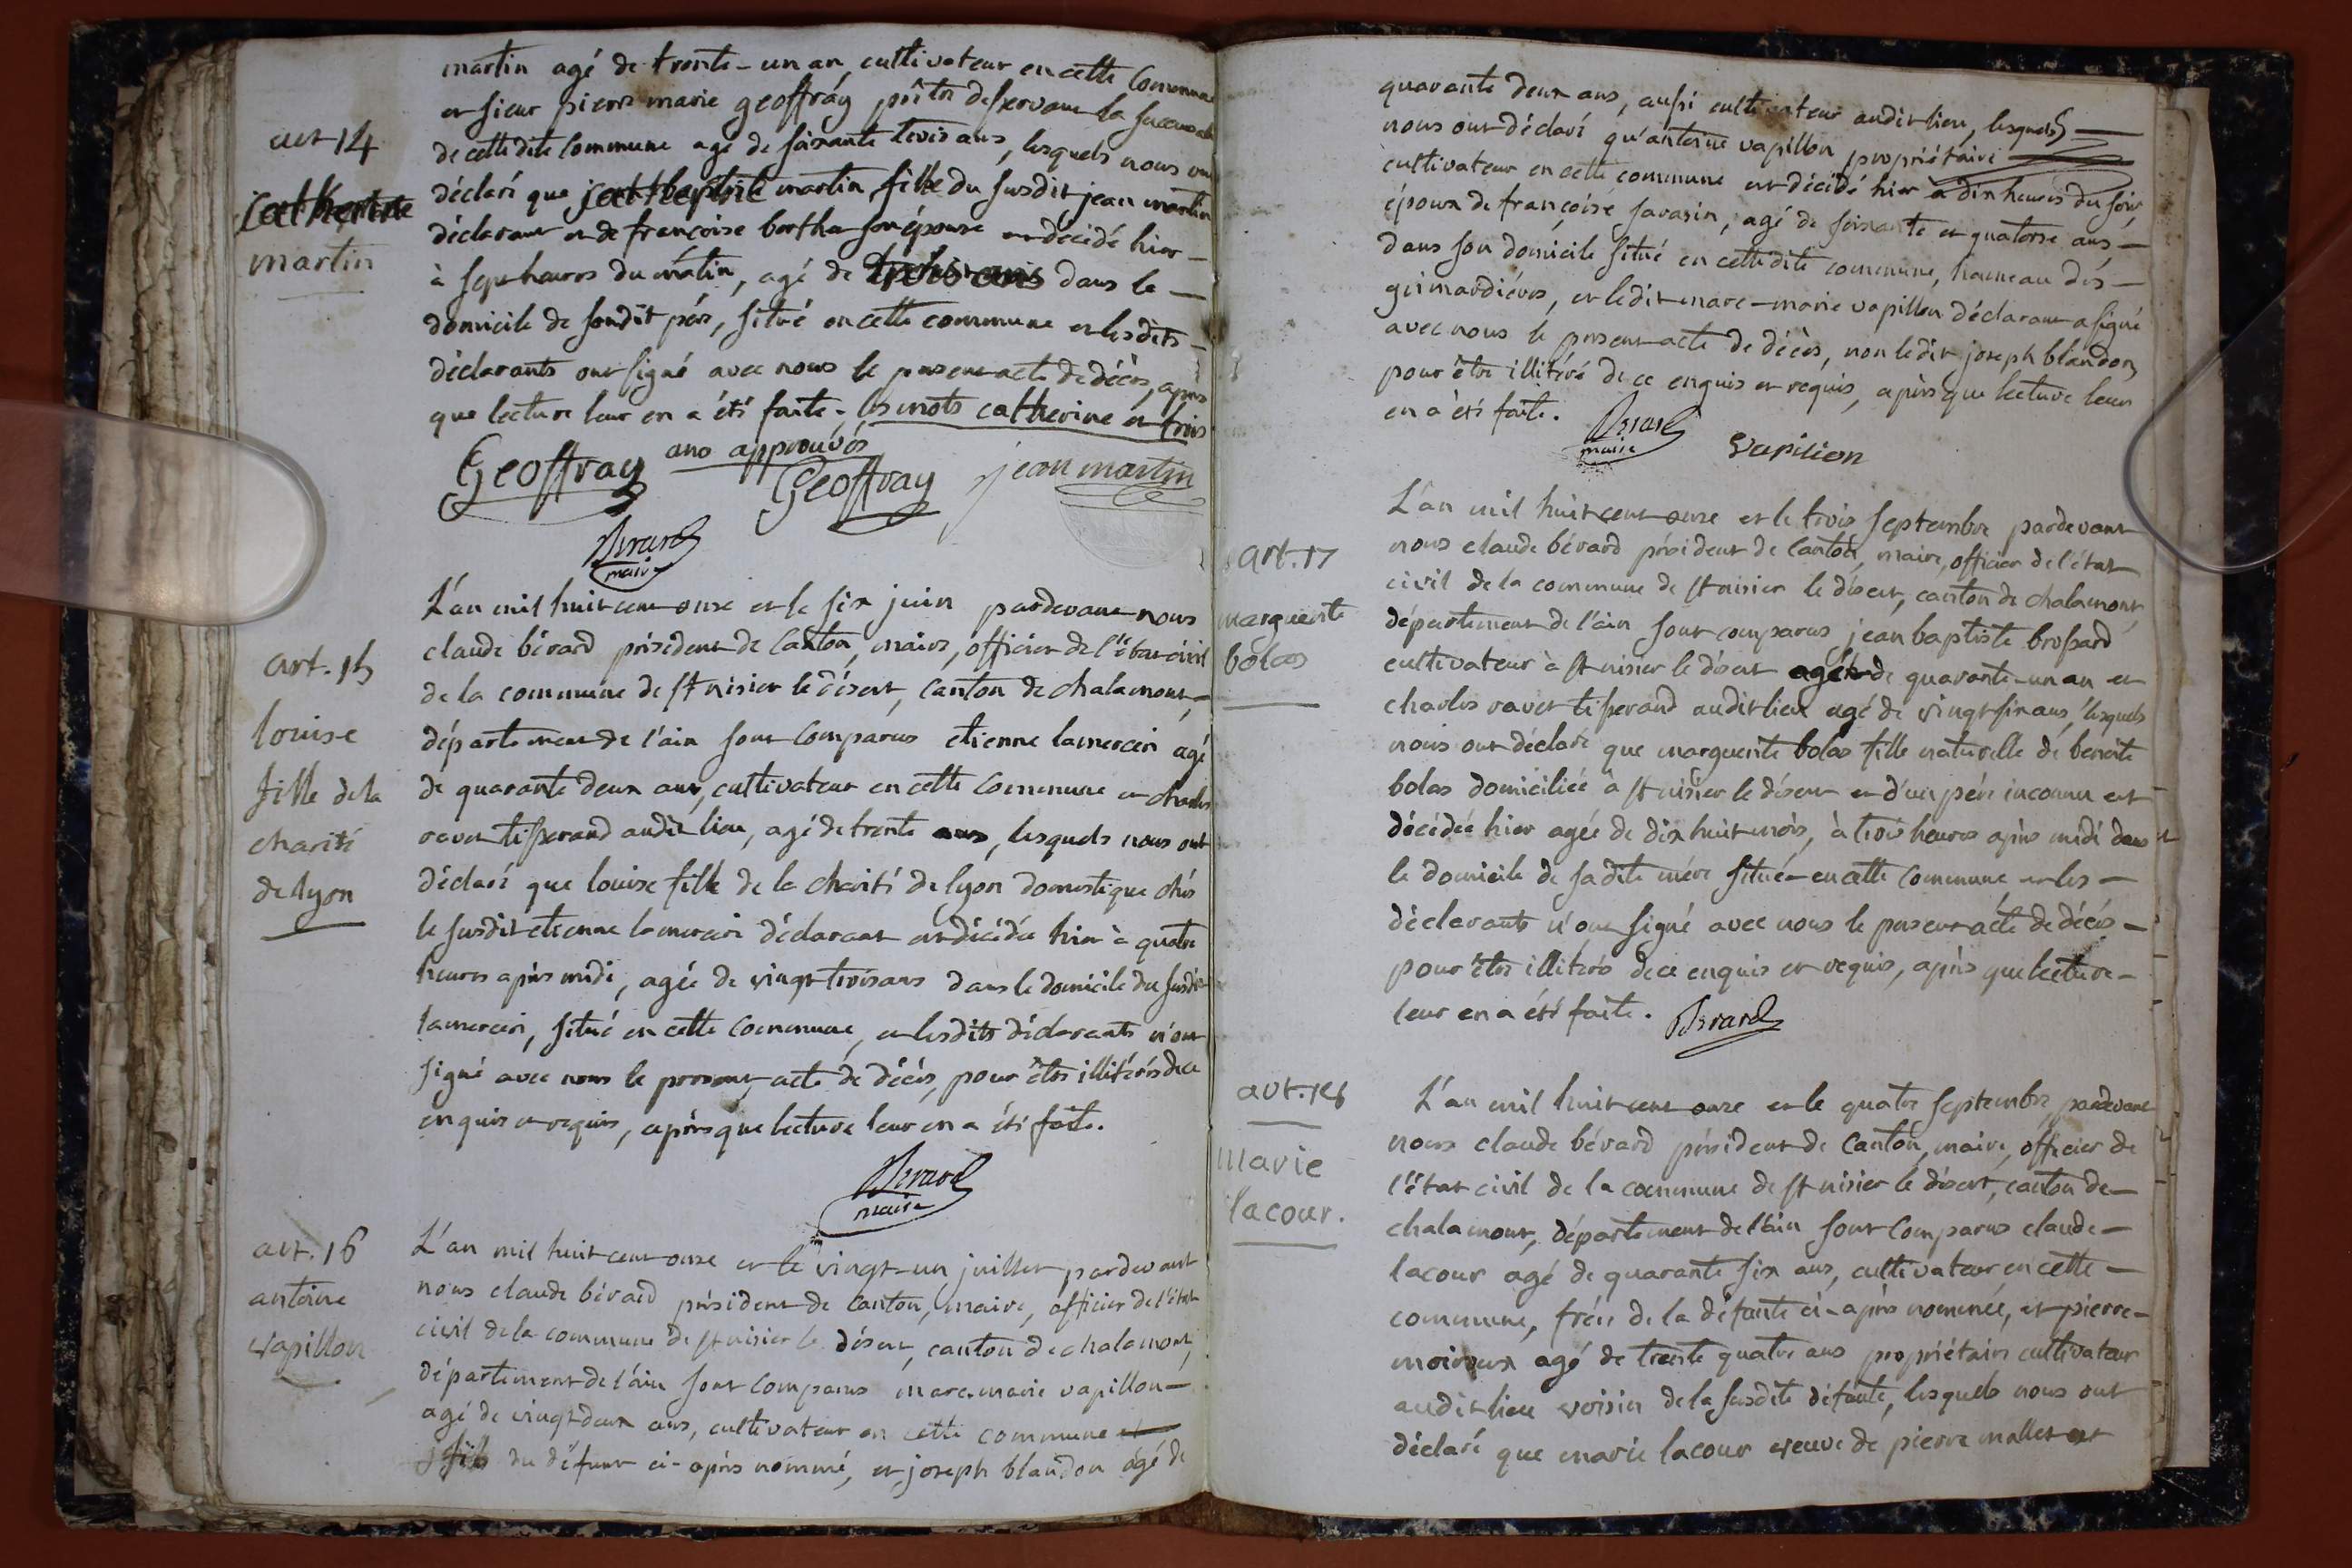 martin agé de trente-un an, cultivateur en cette Commune
et sieur pierre marie geoffray prêtre desservant la succursale
art 14
de cette dite Commune agé de soixante trois ans, lesquels nous ont
catherine
déclaré que catherine martin fille du susdit jean martin
déclarant et de francoise berthe son épouse est décédé hier -
martin
à sept heures du matin, agé de trois ans dans le -
domicile de sondit père, situé en cette commune et lesdits -
déclarants ont signé avec nous le present acte de décès, après
que lecture leur en a été faite - les mots catherine et trois
ans approuvés
Geoffray Geoffray jean martin
Bérard
maire
L'an mil huit cent onze et le six juin pardevant nous
claude bérard président de Canton, maire, officier de l'état civil
art. 15
de la commune de st nisier le désert, Canton de chalamont, -
louise
département de l'ain sont Comparus etienne lamercier agé
fille de la
de quarante deux ans, cultivateur en cette Commune et charles
charité
ravet tisserand audit lieu, agé de trente ans, lesquels nous ont
de lyon
déclaré que louise fille de la charité de lyon domestique chés
le susdit etienne lamercier déclarant est décédée hier à quatre
heures après midi, agée de vingt trois ans dans le domicile du susdit
lamercier, situé en cette Commune, et lesdits déclarants n'ont
signé avec nous le present acte de décès, pour être illitérés de ce
enquis et requis, après que lecture leur en a été faite.
Bérard
maire
art. 16
L'an mil huit cent onze et le vingt-un juillet pardevant
antoine
nous claude bérard président de Canton, maire, officier de l'état
vapillon
civil de la commune de st nisier le désert, canton de chalamont,
département de l'ain sont Comparus marc-marie vapillon -
agé de vingt deux ans, cultivateur en cette commune et
fils du défunt ci-après nommé, et joseph blandon agé de
quarante deux ans, aussi cultivateur audit lieu, lesquels -
nous ont déclaré qu'antoine vapillon propriétaire
cultivateur en cette commune est décédé hier à dix heures du soir,
époux de françoise savarin, agé de soixante et quatorze ans, -
dans son domicile situé en cette dite commune, hameau des -
guimardières, et ledit marc-marie vapillon déclarant a signé
avec nous le present acte de décès, non ledit joseph blandon
pour être illitéré de ce enquis et requis, après que lecture leur
en a été faite.
Bérard
maire
vapilion
L'an mil huit cent onze et le trois septembre pardevant
art. 17
nous claude bérard président de Canton, maire, officier de l'état
civil de la commune de st nisier le désert, canton de chalamont,
marguerite
département de l'ain sont comparus jean baptiste brossard
bolas
cultivateur à st nisier le désert agé de quarante-un an et
charles ravet tisserand audit lieu agé de vingt six ans, lesquels
nous ont déclaré que marguerite bolas fille naturelle de benoite
bolas domiciliée à st nisier le désert et d'un père inconnu est
décédée hier agée de dix huit mois, à trois heures après midi dans
le domicile de sadite mère situé en cette Commune et les -
déclarants n'ont signé avec nous le present acte de décès -
pour être illitérés de ce enquis et requis, après que lecture -
leur en a été faite.
Bérard
art. 18
L'an mil huit cent onze et le quatre septembre, pardevant
marie
nous claude bérard président de Canton, maire, officier de
lacour.
l'état civil de la commune de st nisier le désert, canton de -
chalamont, département de l'ain sont Comparus claude -
lacour agé de quarante six ans, cultivateur en cette -
commune, frère de la défunte ci-après nommée, et pierre -
moiroux agé de trente quatre ans propriétaire cultivateur
audit lieu voisin de la susdite défunte, lesquels nous ont
déclaré que marie lacour veuve de pierre mallet est